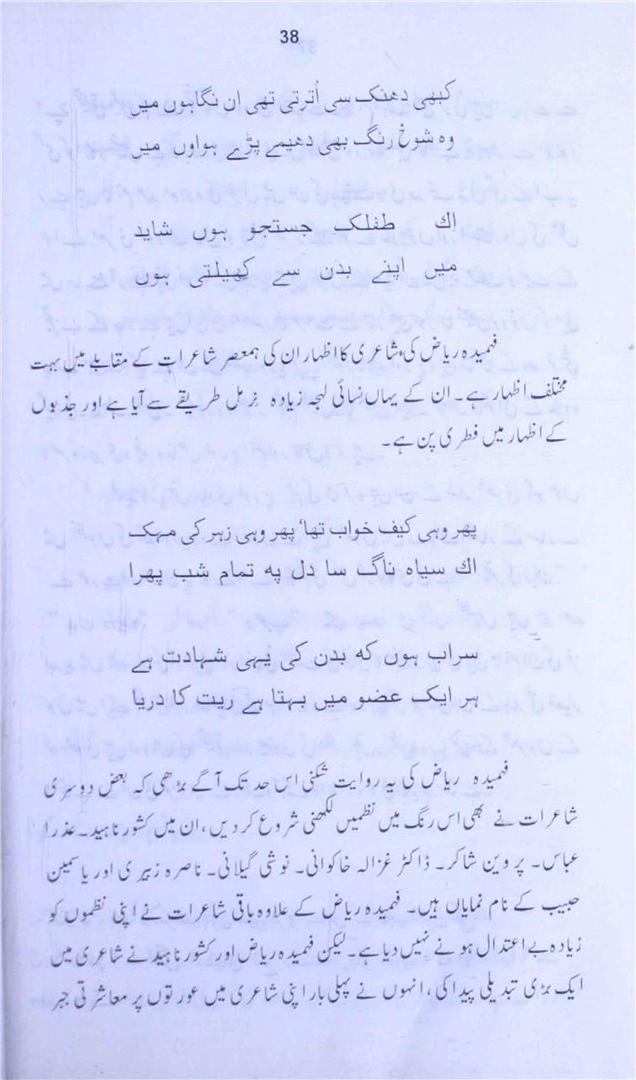 38
کبھی دھنک سی اُترتی تھی ان نگاہوں میں
وہ شوخ رنگ بھی دھیمے پڑے ہواوں میں
اك طفلك جستجو ہوں شاید
میں اپنے بدن سے کھیلتی ہوں
فہمیدہ ریاض کیٔ شاعری کا اظہار ان کی ہمعصر شاعرات کے مقابلے میں بہت
مختلف اظہار ہے۔ ان کے یہاں نسائی لہجہ زیادہ نرمل طریقے سے آیا ہے اور جذبوں
کے اظہار میں فطری پن ہے۔
پھر وہی کیف خواب تھا' پھر وہی زہر کی مہک
اك سیاہ ناگ سا دل په تمام شب پھرا
سراب ہوں که بدن کی یہی شہادت ہے
ہر ایک عضو میں بہتا ہے ریت کا دریا
فہمیدہ ریاض کی یہ روایت شکنی اس حد تک آگے بڑھی کہ بعض دوسری
شاعرات نے بھی اس رنگ میں نظمیں لکھنی شروع کر دیں، ان میں کشور ناہید۔ عذرا
عباس۔ پروین شاکر۔ ڈاکٹر غزالہ خاکوانی۔ نوشی گیلانی۔ ناصرہ زبیری اور یاسمین
حبیب کے نام نمایاں ہیں۔ فہمیدہ ریاض کے علاوہ باقی شاعرات نے اپنی نظموں کو
زیادہ بے اعتدال ہونے نہیں دیا ہے۔ لیکن فہمیدہ ریاض اور کشور ناہید نے شاعری میں
ایک بڑی تبدیلی پیدا کی، انہوں نے پہلی بار اپنی شاعری میں عورتوں پر معاشرتی جبر